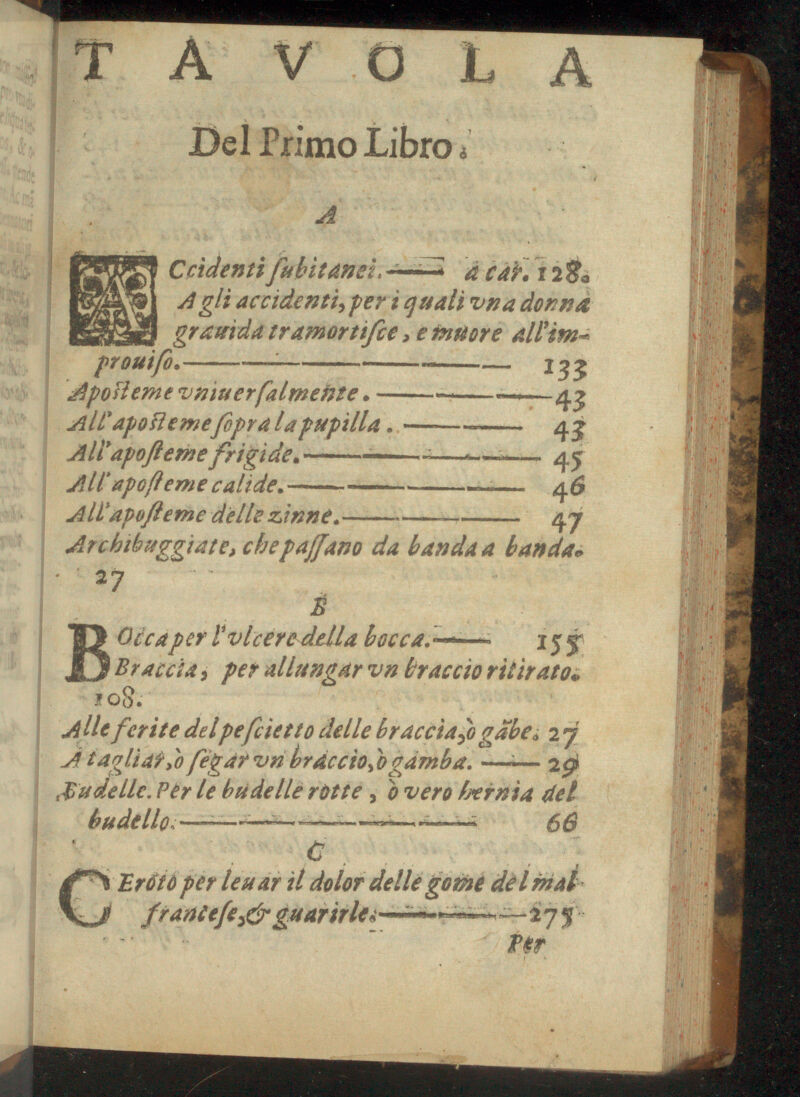 TAVOLA
Del Primo Libro.
A
ACcidenti ſubitanei. — a car. 128.
A gli accidenti, per i quali vna donna
grauida tramortiſce, e muore all'im-
prouiſo. — 133
Apoſteme vniuerſalmente. — 43
All'apoſteme ſopra la pupilla. — 43
All'apoſteme frigide. — 45
All'apoſteme calide. — 46
All'apoſteme delle zinne. — 47
Archibuggiate, che paſſano da banda a banda.
27
B
BOcca per l'vlcere della bocca. — 155
Braccia, per allungar vn braccio ritirato.
108.
Alle ferite del peſcietto delle braccia,ò gābe. 27
A tagliar,ò ſegar vn braccio,ò gamba. — 29
Budelle. Per le budelle rotte, ò vero hernia del
budello. — 66
C
CEroto per leuar il dolor delle gome del mal
franceſe,& guarirle. — 275
Per